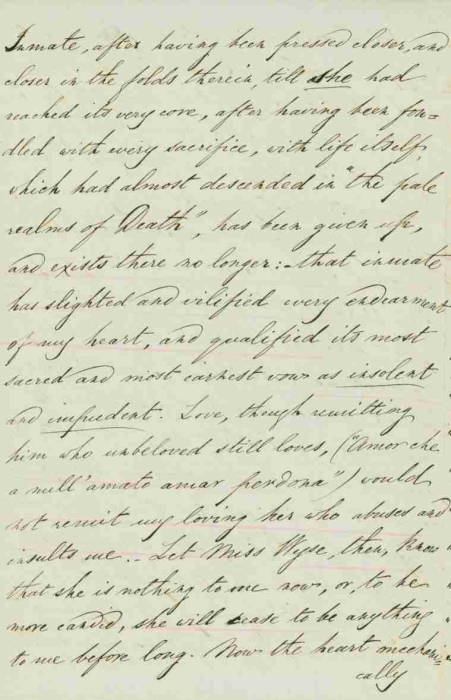 Inmate, after having been pressed closer, and
closer in the folds therein, till she had
reached its very core, after having been fon=
dled with every sacrifice, with life itself,
which had almost descended in "the pale
realms of Death", has been given up,
and exists there no longer:–that inmate
has slighted and vilified every endearment
of my heart, and qualified its most
sacred and most earnest vow as insolent
and impudent. Love, though remitting
him who unbeloved still loves, ("Amor che
a null'amato amar perdona") would
not remit my loving her who abuses and
insults me.. Let Miss Wyse, then, know
that she is nothing to me now, or, to be
more candid, she will cease to be anything
to me before long. Now the heart mechani=
cally